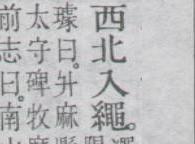 西北入繩。
璩曰。升麻
太守碑牧
前志曰。南